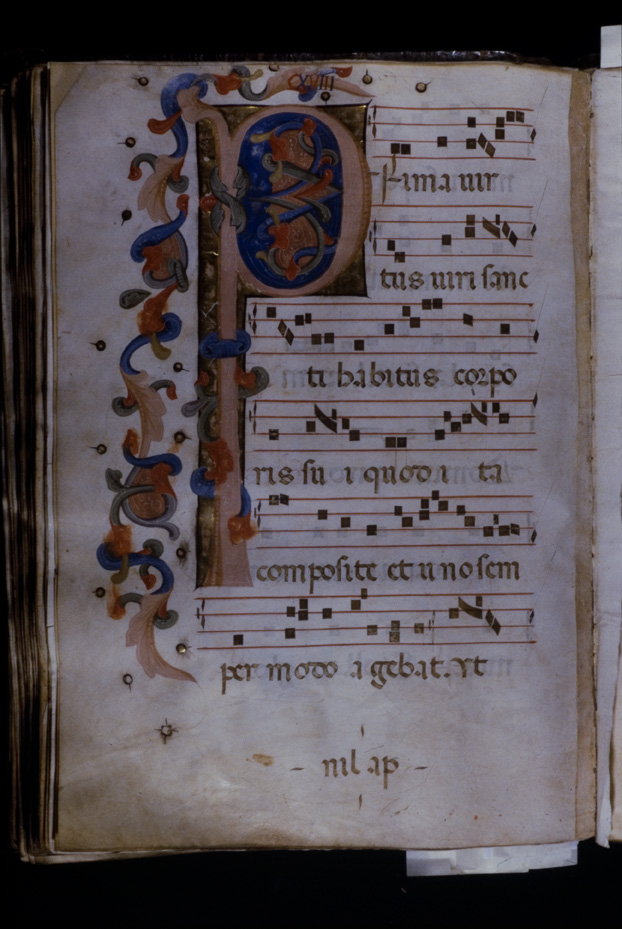 CXVIII
P rima uir
tus uiri sanc
ti habitus corpo
ris fu i quod i ta
composite et u no sem
per modo a gebat. Vt
- nil ap -